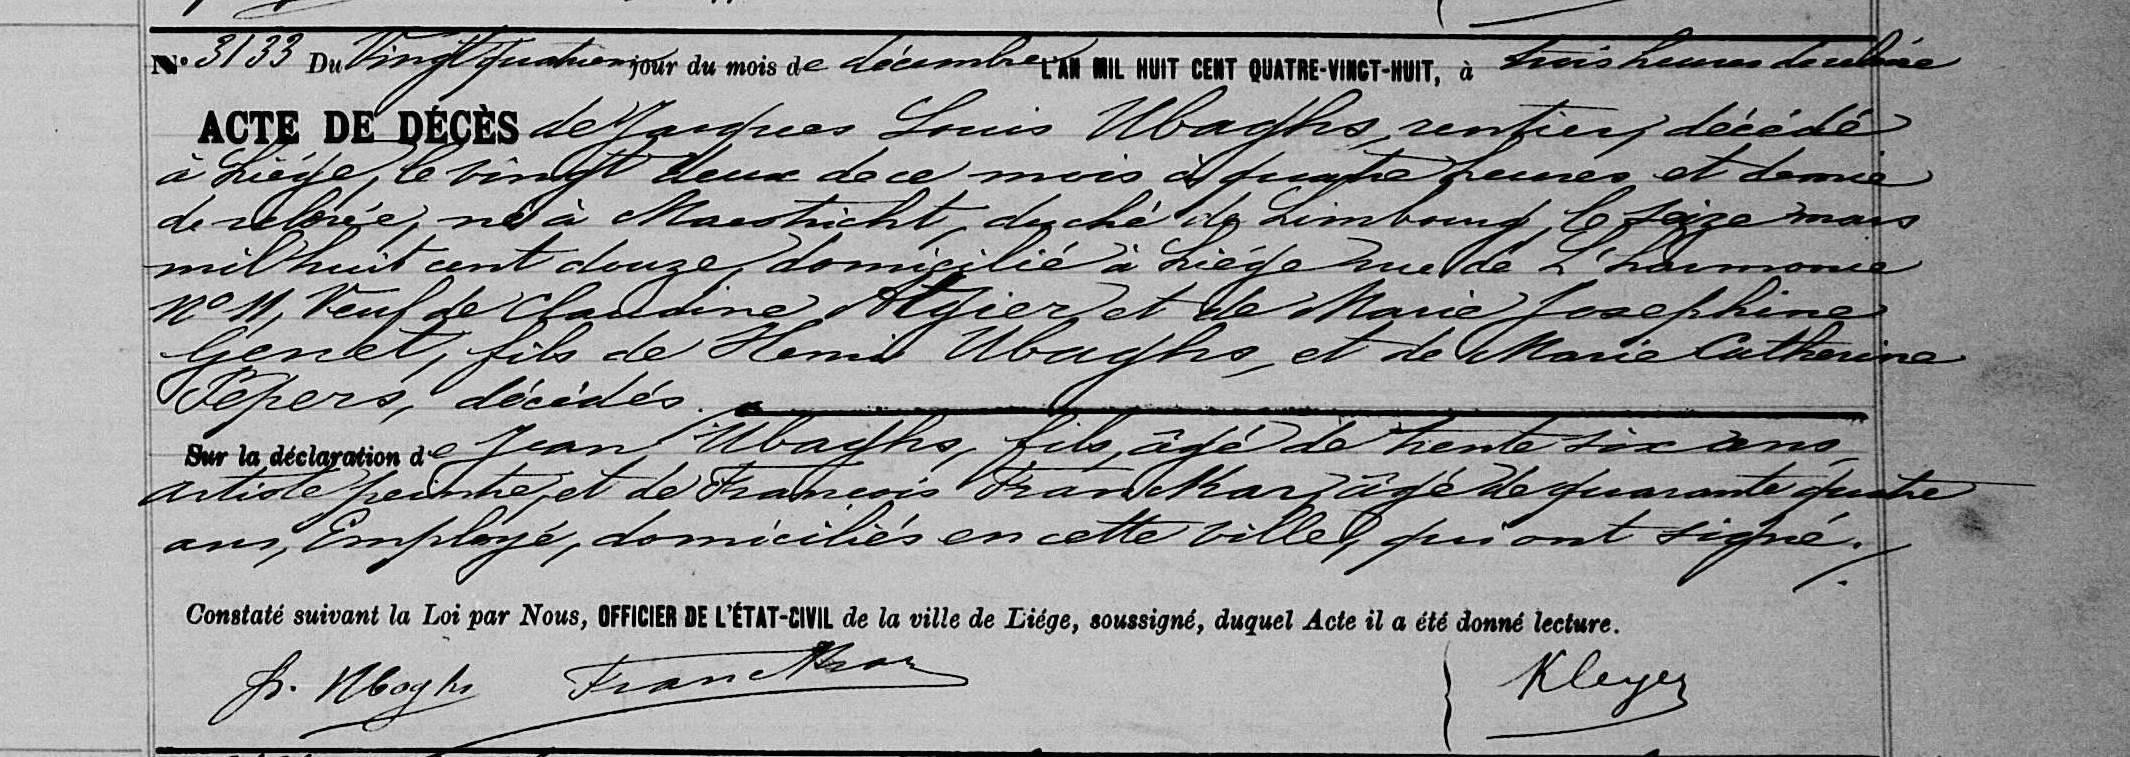 N° 3133 Du Vingt quatrième jour du mois de décembre L'AN MIL HUIT CENT QUATRE-VINGT-HUIT, à trois heures de relevée
ACTE DE DÉCÈS de Jacques Louis Ubaghs, rentier, décédé
à Liége, le vingt deux de ce mois à quatre heures et demie
de relevée, né à Maestricht, duché de Limbourg, le seize mars
mil huit cent douze, domicilié à Liége rue de L'harmonie
N° 11, Veuf de Claudine Algier et de Marie Josephine
Genet, fils de Henri Ubaghs, et de Marie Catherine
Pepers, décédés.
Sur la déclaration de Jean Ubaghs, fils, âgé de trente six ans,
artiste peintre, et de François Franckar, âgé de quarante quatre
ans, Employé, domiciliés en cette ville, qui ont signé.
Constaté suivant la Loi par Nous, OFFICIER DE L'ÉTAT-CIVIL de la ville de Liége, soussigné, duquel Acte il a été donné lecture.
Ubaghs Franckar Kleyer